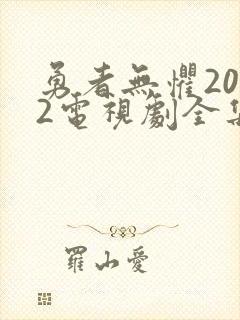 勇者無懼20
2電視劇全集
羅山愛